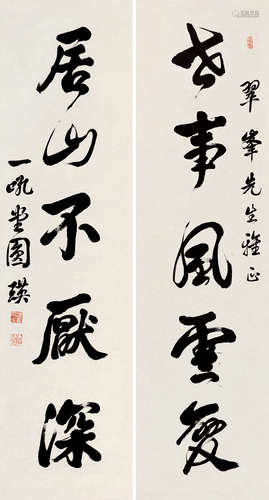 翠峰先生雅正
世事風雲變
居山不厭深
一吼堂圓瑛